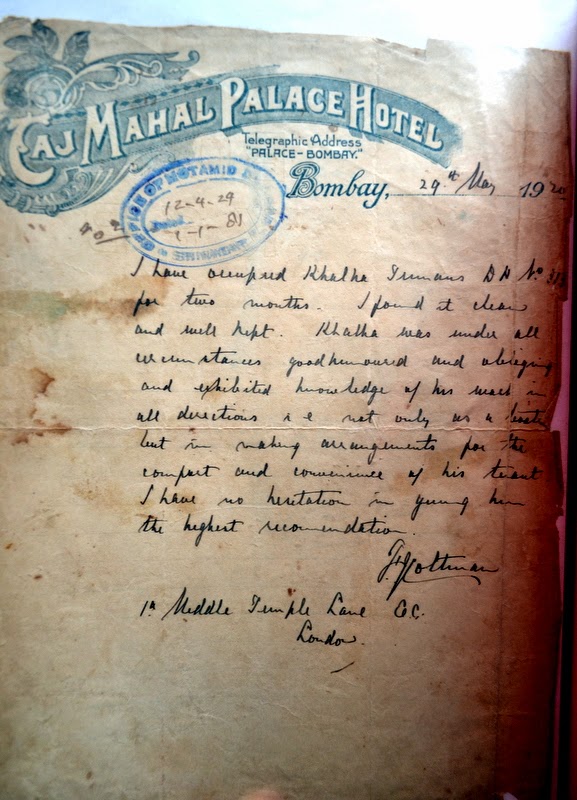 TAJ MAHAL PALACE HOTEL
Telegraphic Address
"PALACE-BOMBAY."
Bombay, 29th May 1920
OFFICE OF MOTAMID
12-4-29
1-1-81
SRINAGAR
I have occupied Khalka D H No
for two months. I found it clean
and well kept. Khalka was under all
circumstances goodhumoured and obliging
and exhibited knowledge of his work in
all directions i e not only as a
but in making arrangements for the
comfort and convenience of his tenant
I have no hesitation in giving him
the highest recomendation.
Coltman
1a Middle Temple Lane EC.
London.